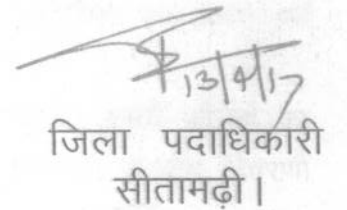 13/4/17
जिला पदाधिकारी
सीतामढ़ी।